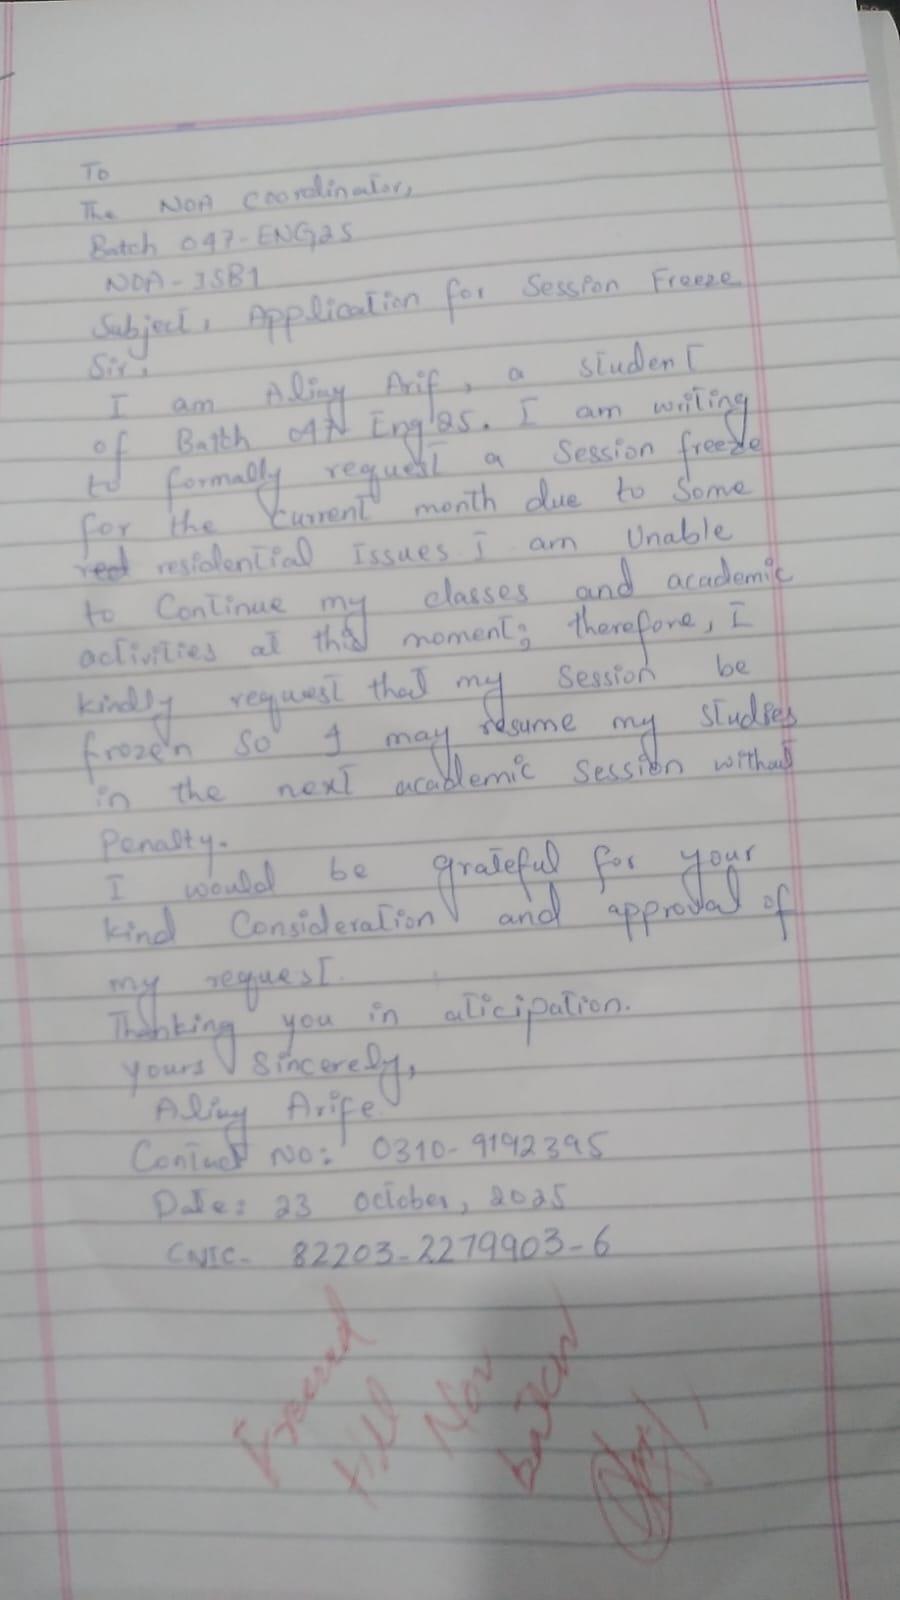 To
The NOA Coordinator,
Batch 047-ENG25
NOA-ISB1
Subject, Application for Session Freeze
Sir,
I am Alizy Arif, a student
of Batch 047 Eng'25. I am writing
to formally request a Session freeze
for the Current month due to Some
residential Issues. I am Unable
to Continue my classes and academic
activities at this moment; therefore, I
kindly request that my Session be
frozen so I may resume my studies
in the next academic Session without
Penalty.
I would be grateful for your
kind Consideration and approval of
my request.
Thanking you in aticipation.
Yours Sincerely,
Alizy Arife
Contact No: 0310-9192395
Date: 23 October, 2025
CNIC- 82203-2279903-6
till Nov